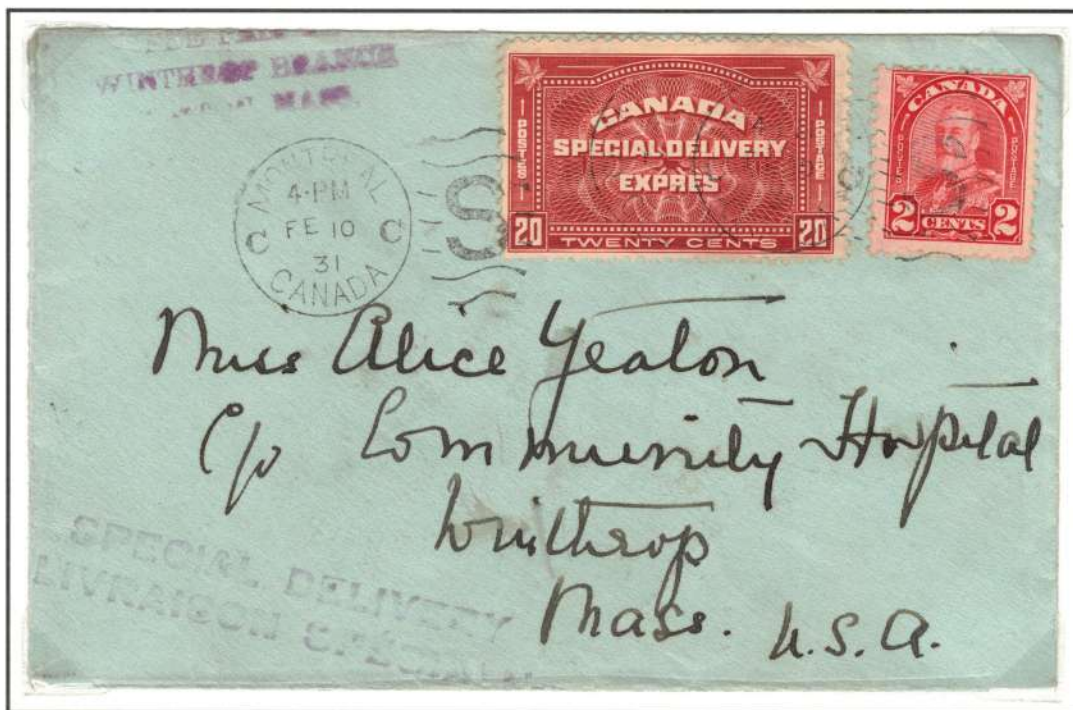 WINTHROP BRANCH
MASS.
MONTREAL
4-PM
FE 10
31
C C
CANADA
S
CANADA
SPECIAL DELIVERY
EXPRES
POSTES
POSTAGE
20 TWENTY CENTS 20
CANADA
POSTES
POSTAGE
2 CENTS 2
Miss Alice Yeaton
c/o Community Hospital
Winthrop
Mass. U.S.A.
SPECIAL DELIVERY
LIVRAISON SPECIALE